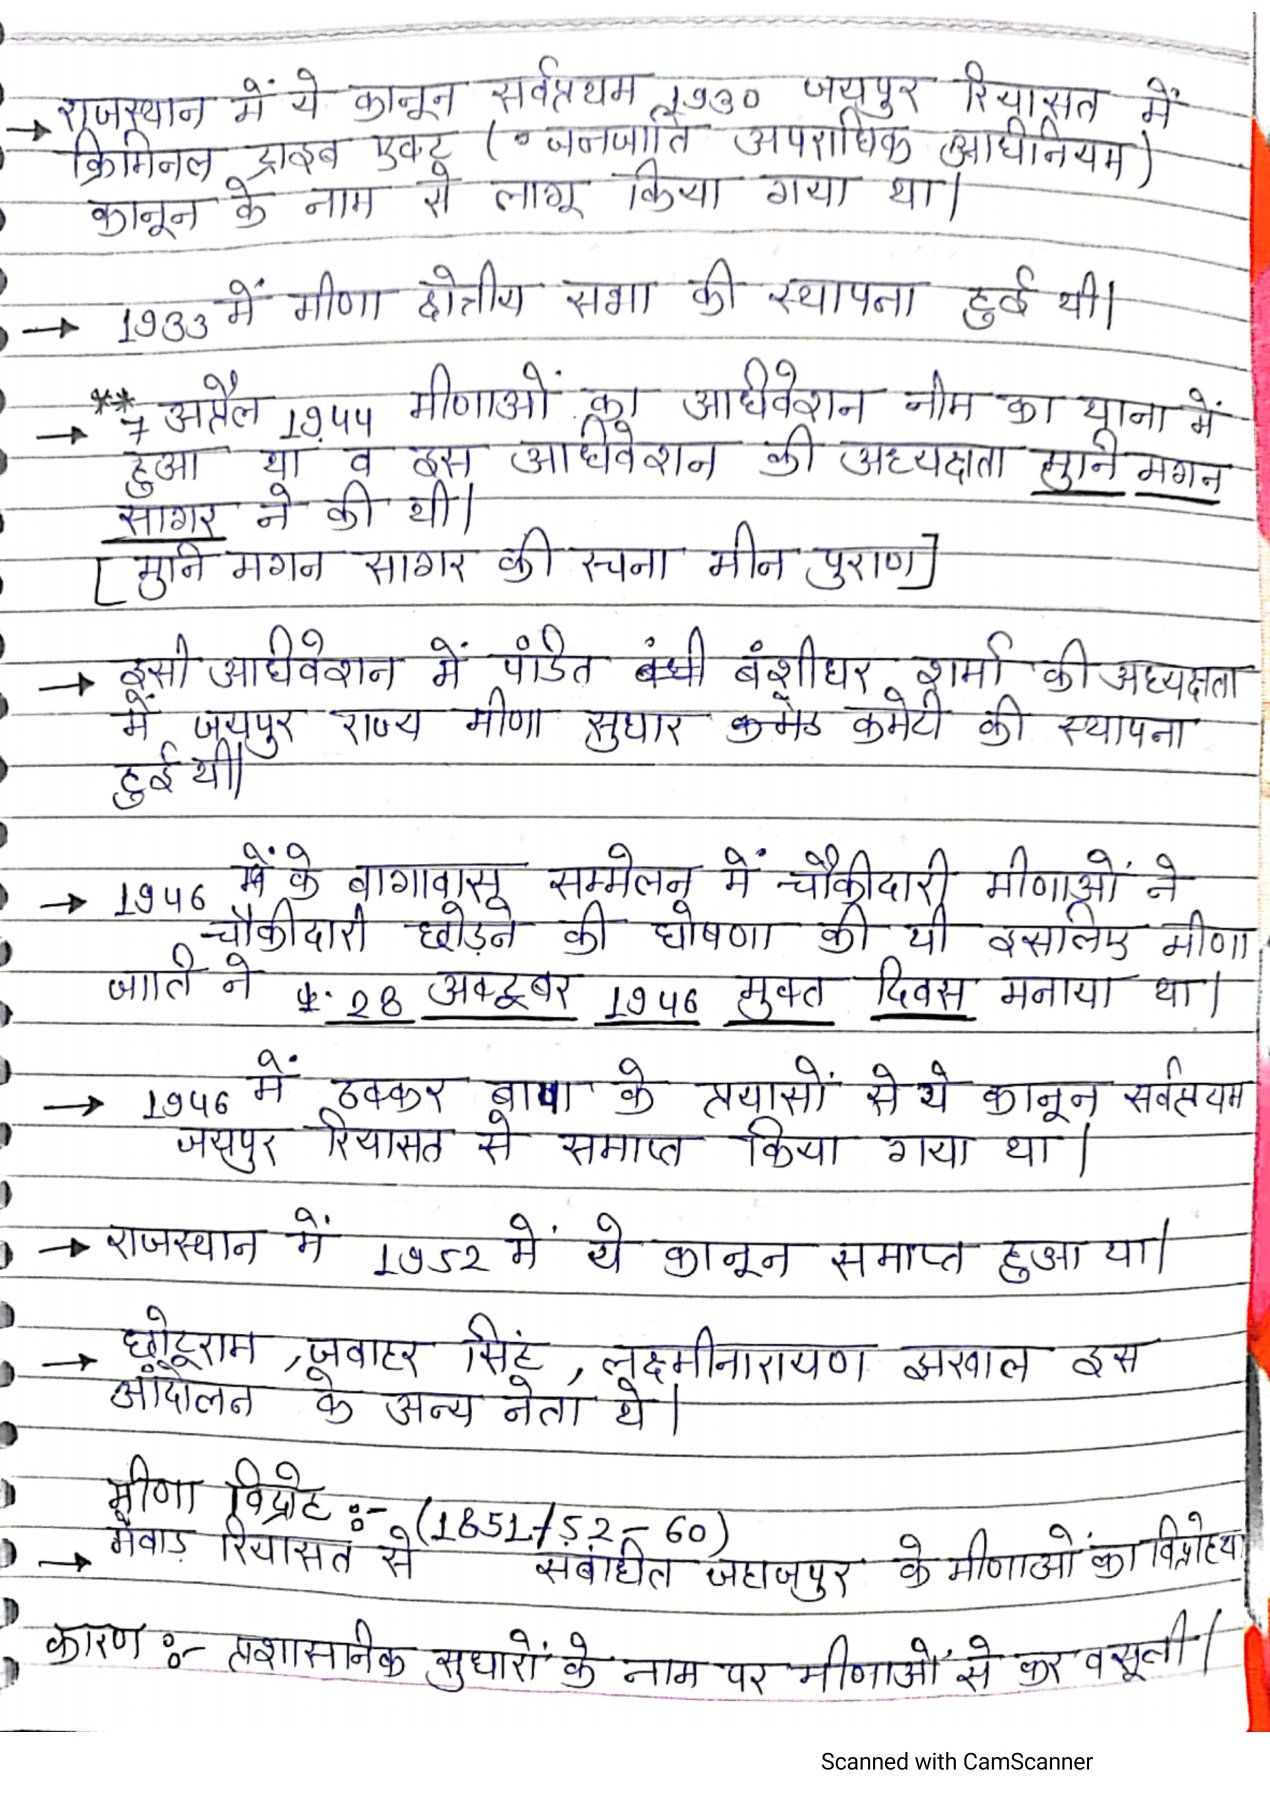 → राजस्थान में ये कानून सर्वप्रथम 1930 जयपुर रियासत में
क्रिमिनल ट्राइब एक्ट (जनजाति अपराधिक अधिनियम)
कानून के नाम से लागू किया गया था|
→ 1933 में मीणा क्षेत्रीय सभा की स्थापना हुई थी|
**
→ 7 अप्रैल 1944 मीणाओं का अधिवेशन नीम का थाना में
हुआ था व इस अधिवेशन की अध्यक्षता मुनि मगन
सागर ने की थी|
[मुनि मगन सागर की रचना मीन पुराण]
→ इसी अधिवेशन में पंडित बंशीधर शर्मा की अध्यक्षता
में जयपुर राज्य मीणा सुधार कमेटी की स्थापना
हुई थी|
→ 1946 के बागावास सम्मेलन में चौकीदारी मीणाओं ने
चौकीदारी छोड़ने की घोषणा की थी इसलिए मीणा
जाति ने 28 अक्टूबर 1946 मुक्त दिवस मनाया था|
→ 1946 में ठक्कर बापा के प्रयासों से ये कानून सर्वप्रथम
जयपुर रियासत से समाप्त किया गया था|
→ राजस्थान में 1952 में ये कानून समाप्त हुआ था|
→ छोटूराम, जवाहर सिंह, लक्ष्मीनारायण झरवाल इस
आंदोलन के अन्य नेता थे|
मीणा विद्रोह :- (1851/52-60)
→ मेवाड़ रियासत से संबंधित जहाजपुर के मीणाओं का विद्रोह था
कारण :- प्रशासनिक सुधारों के नाम पर मीणाओं से कर वसूली|
Scanned with CamScanner